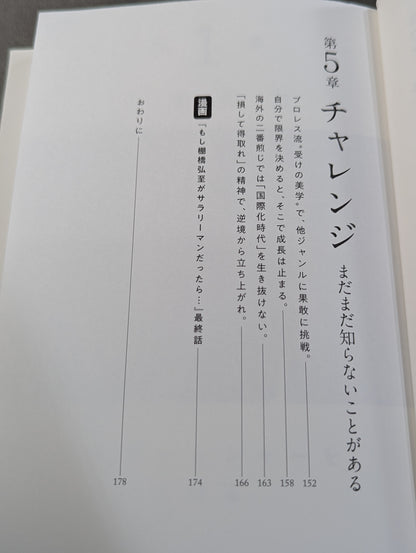 第5章 チャレンジ まだまだ知らないことがある
プロレス流“受けの美学”で、他ジャンルに果敢に挑戦。 152
自分で限界を決めると、そこで成長は止まる。 158
海外の二番煎じでは「国際化時代」を生き抜けない。 163
「損して得取れ」の精神で、逆境から立ち上がれ。 166
漫画 「もし棚橋弘至がサラリーマンだったら…」最終話 174
おわりに 178